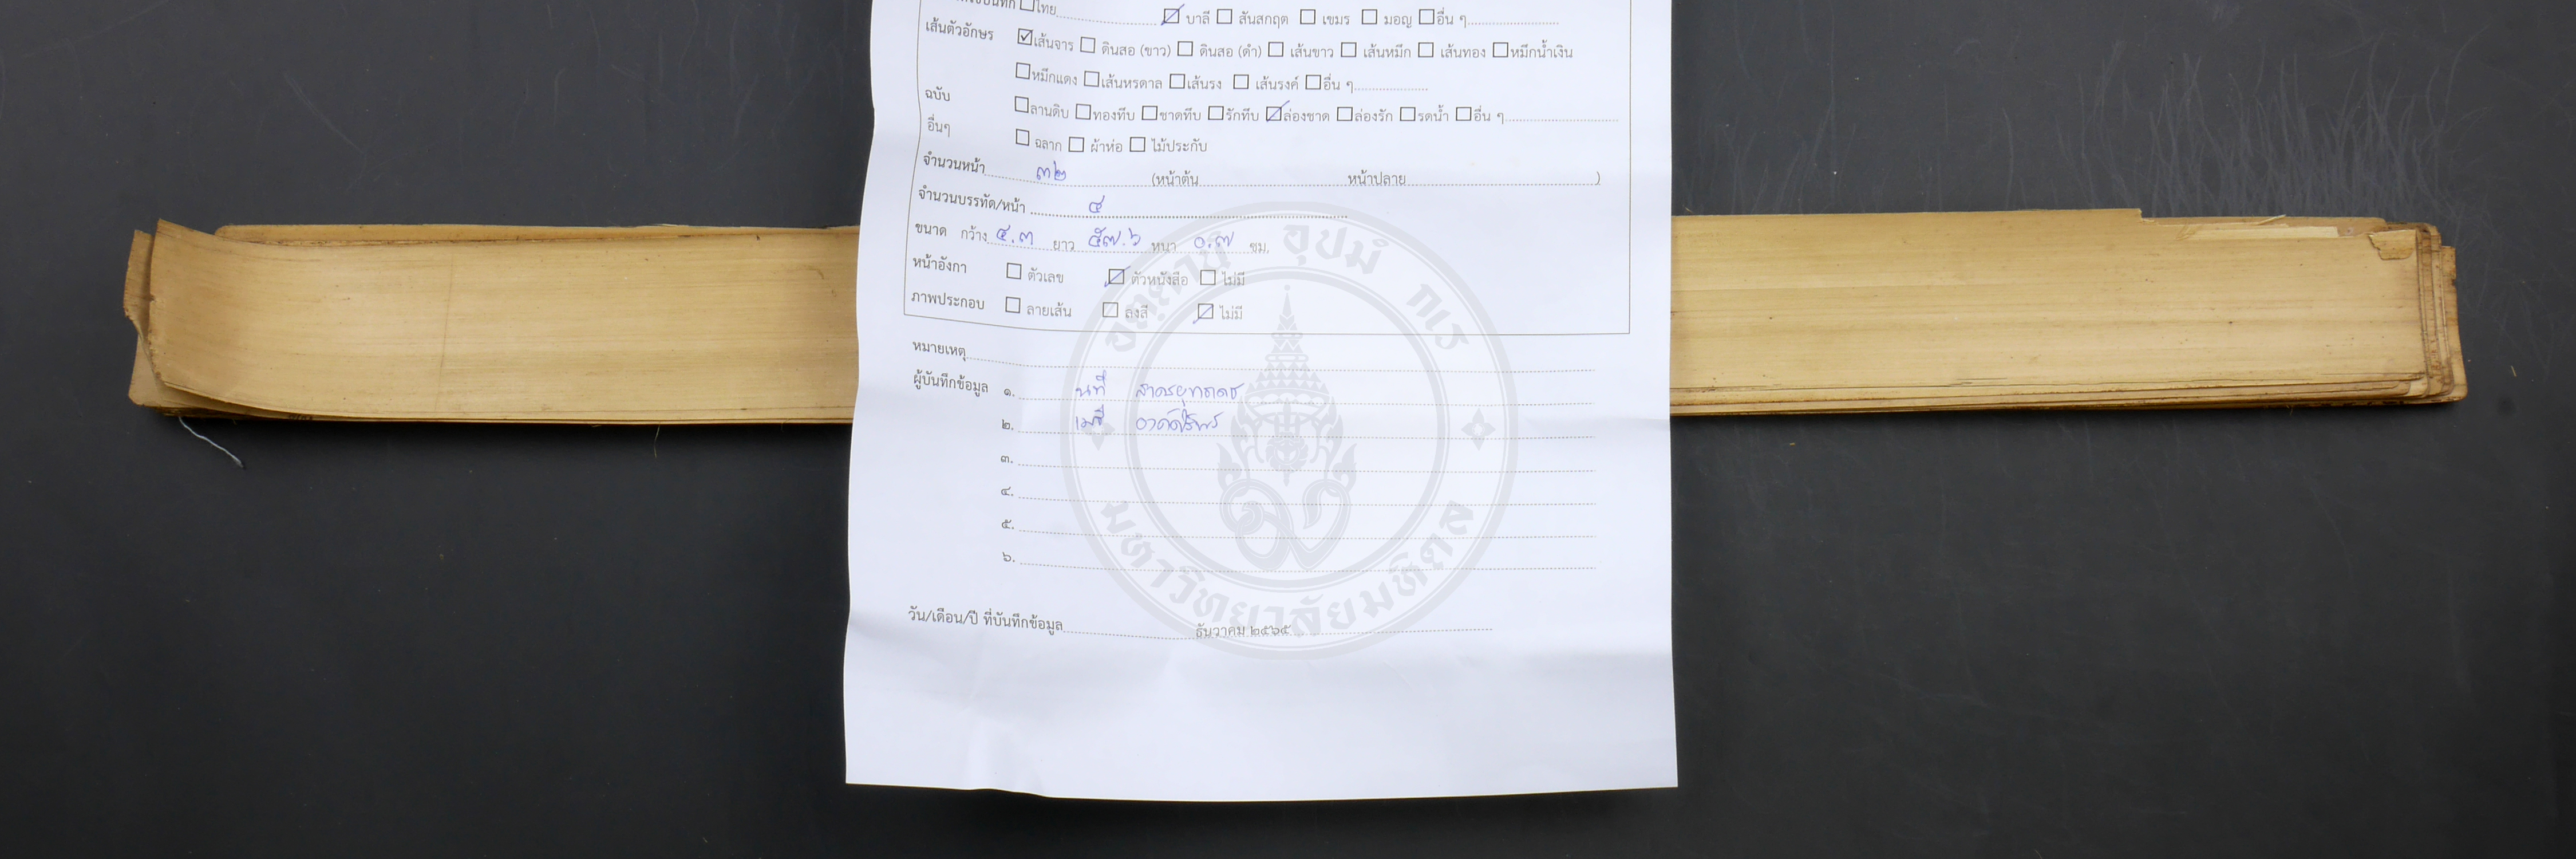 ☐ไทย ☑ บาลี ☐ สันสกฤต ☐ เขมร ☐ มอญ ☐อื่น ๆ
เส้นตัวอักษร ☑เส้นจาร ☐ ดินสอ (ขาว) ☐ ดินสอ (ดำ) ☐ เส้นขาว ☐ เส้นหมึก ☐ เส้นทอง ☐หมึกน้ำเงิน
☐หมึกแดง ☐เส้นหรดาล ☐เส้นรง ☐ เส้นรงค์ ☐อื่น ๆ
ฉบับ ☐ลานดิบ ☐ทองทึบ ☐ชาดทึบ ☐รักทึบ ☑ล่องชาด ☐ล่องรัก ☐รดน้ำ ☐อื่น ๆ
อื่นๆ ☐ ฉลาก ☐ ผ้าห่อ ☐ ไม้ประกับ
จำนวนหน้า ๓๒ (หน้าต้น หน้าปลาย )
จำนวนบรรทัด/หน้า ๔
ขนาด กว้าง ๔.๓ ยาว ๕๗.๖ หนา ๐.๗ ซม.
หน้าอังกา ☐ ตัวเลข ☑ ตัวหนังสือ ☐ ไม่มี
ภาพประกอบ ☐ ลายเส้น ☐ ลงสี ☑ ไม่มี
หมายเหตุ
ผู้บันทึกข้อมูล ๑. นที
๒.
๓.
๔.
๕.
๖.
วัน/เดือน/ปี ที่บันทึกข้อมูล ธันวาคม ๒๕๖๕
อตฺตานํ อุปมํ กเร
มหาวิทยาลัยมหิดล